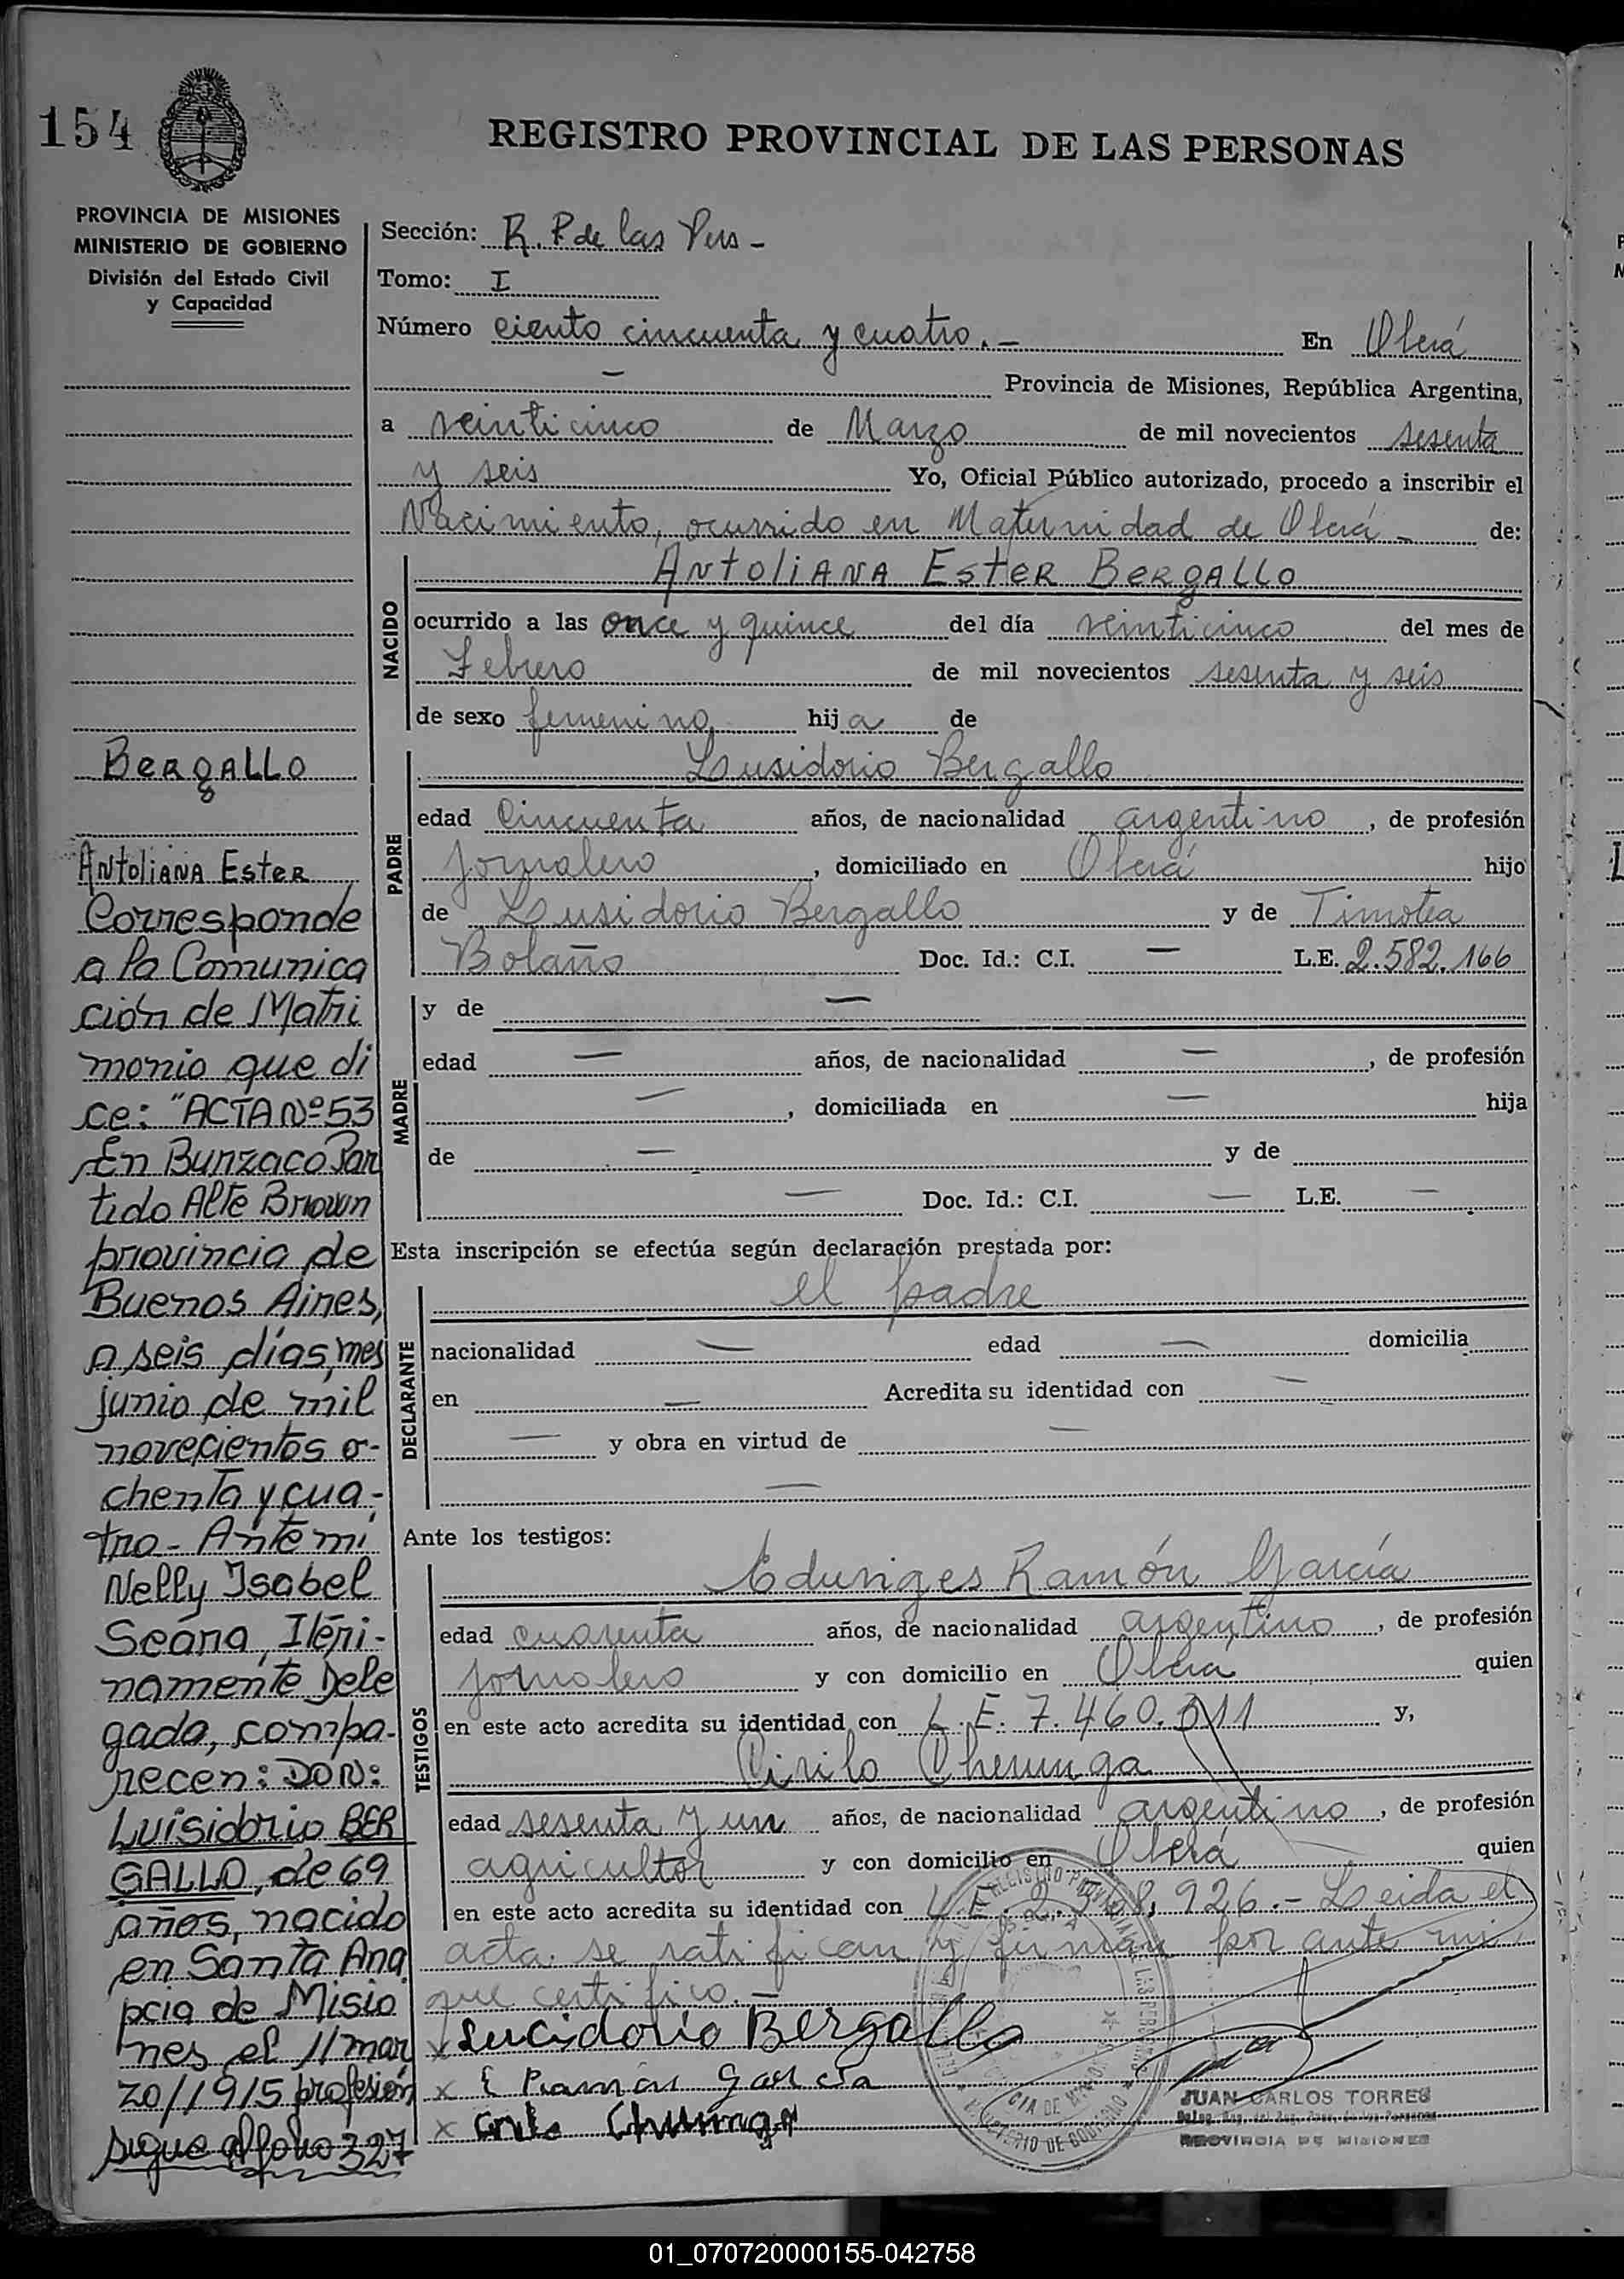 154
REGISTRO PROVINCIAL DE LAS PERSONAS
PROVINCIA DE MISIONES
MINISTERIO DE GOBIERNO
División del Estado Civil
y Capacidad
Sección: R. P. de las Pers -
Tomo: I
Número ciento cincuenta y cuatro.- En Oberá
— Provincia de Misiones, República Argentina,
a veinticinco de Marzo de mil novecientos sesenta
y seis Yo, Oficial Público autorizado, procedo a inscribir el
Nacimiento, ocurrido en Maternidad de Oberá - de:
NACIDO
ANtoliANA EstER BERgALLO
ocurrido a las once y quince del día veinticinco del mes de
Febrero de mil novecientos sesenta y seis
de sexo femenino hija de
PADRE
Lusidorio Bergallo
edad Cincuenta años, de nacionalidad argentino, de profesión
Jornalero, domiciliado en Oberá hijo
de Lusidorio Bergallo y de Timotea
Bolaño Doc. Id.: C.I. — L.E. 2.582.166
MADRE
y de —
edad — años, de nacionalidad —, de profesión
—, domiciliada en — hija
de — y de
— Doc. Id.: C.I. — L.E. —
Esta inscripción se efectúa según declaración prestada por:
DECLARANTE
el padre
nacionalidad — edad — domicilia
en — Acredita su identidad con —
— y obra en virtud de —
—
Ante los testigos:
TESTIGOS
Eduviges Ramón García
edad cuarenta años, de nacionalidad argentino, de profesión
jornalero y con domicilio en Oberá quien
en este acto acredita su identidad con L.E. 7.460.011 y,
Cirilo Cherunga
edad sesenta y un años, de nacionalidad argentino, de profesión
agricultor y con domicilio en Oberá quien
en este acto acredita su identidad con L.E. 8,926.- Leida el
acta se ratifican y firman por ante mi
que certifico.-
x Lucidorio Bergallo
x E Ramón García
x
JUAN CARLOS TORRES
PROVINCIA DE MISIONES
BERgALLO
ANtoliANA EstER
Corresponde
a la Comunica
ción de Matri
monio que di
ce: "ACTA Nº 53
En Burzaco Par
tido Alte Brown
provincia de
Buenos Aires,
a seis días, mes
junio de mil
novecientos o-
chenta y cua-
tro- Ante mi
Nelly Isabel
Seara, Iteri-
namente Dele
gada, compa-
recen: DON:
Luisidorio BER
GALLO, de 69
años, nacido
en Santa Ana
pcia de Misio
nes el 11 mar
zo/1915 profesión
sigue al folio 327
01_070720000155-042758